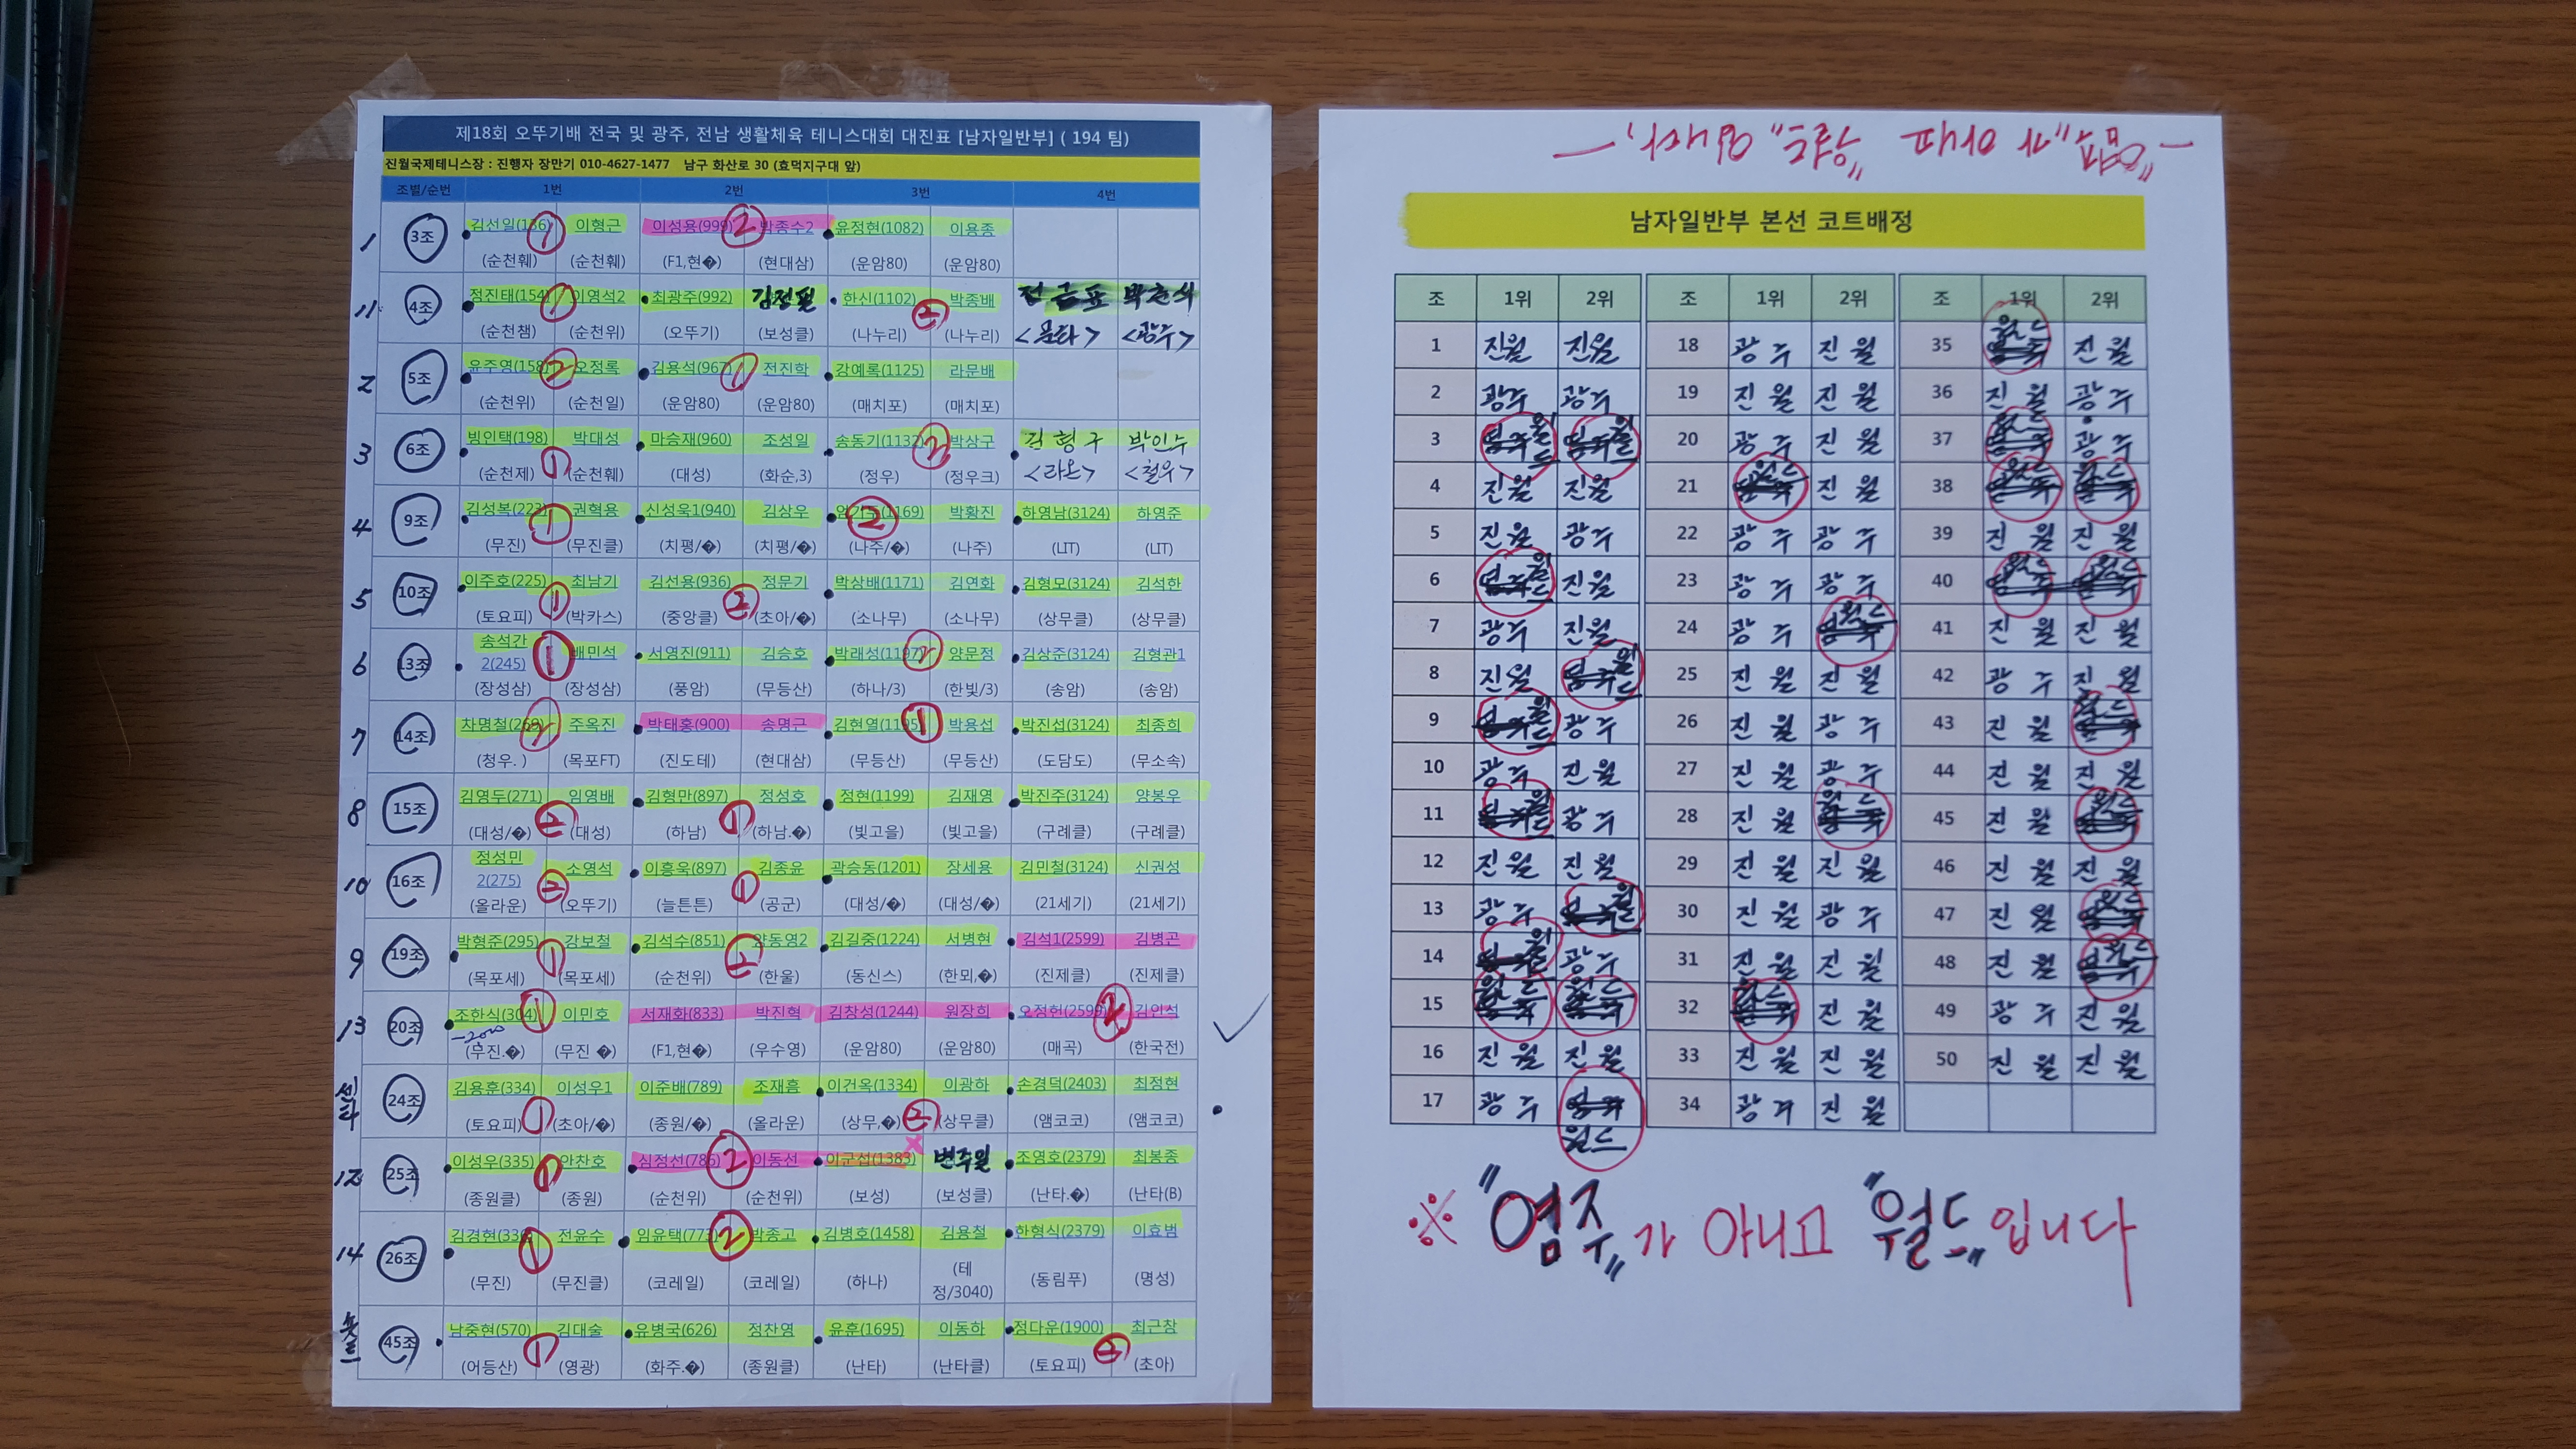 제18회 오뚜기배 전국 및 광주, 전남 생활체육 테니스대회 대진표 [남자일반부] ( 194 팀)
진월국제테니스장 : 진행자 장만기 010-4627-1477 남구 화산로 30 (효덕지구대 앞)
조별/순번 1번 2번 3번 4번
1 3조 김선일(136) ① 이형근 이성용(999) ② 박종수2 윤정현(1082) 이용종
(순천훼) (순천훼) (F1,현�) (현대삼) (운암80) (운암80)
11 4조 정진태(154) ① 이영석2 최광주(992) 김정필 한신(1102) ② 박종배
(순천챔) (순천위) (오뚜기) (보성클) (나누리) (나누리) <광주>
2 5조 윤주영(158) ② 오정록 김용석(967) ① 전진학 강예록(1125) 라문배
(순천위) (순천일) (운암80) (운암80) (매치포) (매치포)
3 6조 빙인택(198) ① 박대성 마승재(960) 조성일 송동기(1132) ② 박상구 김형구 박인수
(순천제) (순천훼) (대성) (화순,3) (정우) (정우크) <라온> <철우>
4 9조 김성복(223) ① 권혁용 신성욱1(940) 김상우 ② (1169) 박황진 하영남(3124) 하영준
(무진) (무진클) (치평/�) (치평/�) (나주/�) (나주) (LIT) (LIT)
5 10조 이주호(225) ① 최남기 김선용(936) ② 정문기 박상배(1171) 김연화 김형모(3124) 김석한
(토요피) (박카스) (중앙클) (초아/�) (소나무) (소나무) (상무클) (상무클)
6 13조 송석간2(245) ① 배민석 서영진(911) 김승호 박래성(1197) ② 양문정 김상준(3124) 김형관1
(장성삼) (장성삼) (풍암) (무등산) (하나/3) (한빛/3) (송암) (송암)
7 14조 차명철(269) ② 주옥진 박태홍(900) 송명근 김현열(1195) ① 박용섭 박진섭(3124) 최종희
(청우. ) (목포FT) (진도테) (현대삼) (무등산) (무등산) (도담도) (무소속)
8 15조 김영두(271) ② 임영배 김형만(897) ① 정성호 정현(1199) 김재영 박진주(3124) 양봉우
(대성/�) (대성) (하남) (하남.�) (빛고을) (빛고을) (구례클) (구례클)
10 16조 정성민2(275) ② 소영석 이흥욱(897) ① 김종윤 곽승동(1201) 장세용 김민철(3124) 신권성
(올라운) (오뚜기) (늘튼튼) (공군) (대성/�) (대성/�) (21세기) (21세기)
9 19조 박형준(295) ① 강보철 김석수(851) ② 양동영2 김길중(1224) 서병현 김석1(2599) 김병곤
(목포세) (목포세) (순천위) (한울) (동신스) (한뫼,�) (진제클) (진제클)
13 20조 조한식(304) ① 이민호 서재화(833) 박진혁 김창성(1244) 원장희 오정헌(2599) ② 김인석
(무진.�) (무진 �) (F1,현�) (우수영) (운암80) (운암80) (매곡) (한국전)
센타 24조 김용훈(334) ① 이성우1 이준배(789) 조재흠 이건옥(1334) ② 이광하 손경덕(2403) 최정현
(토요피) (초아/�) (종원/�) (올라운) (상무,�) (상무클) (앰코코) (앰코코)
12 25조 이성우(335) ① 안찬호 심정선(786) ② 이동선 이군섭(1383) 변주일 조영호(2379) 최봉종
(종원클) (종원) (순천위) (순천위) (보성) (보성클) (난타.�) (난타(B)
14 26조 김경현(336) ① 전윤수 임윤택(773) ② 박종고 김병호(1458) 김용철 한형식(2379) 이효범
(무진) (무진클) (코레일) (코레일) (하나) (테정/3040) (동림푸) (명성)
45조 남중현(570) ① 김대술 유병국(626) 정찬영 윤훈(1695) 이동하 정다운(1900) ② 최근창
(어등산) (영광) (화주.�) (종원클) (난타) (난타클) (토요피) (초아)
남자일반부 본선 코트배정
조 1위 2위 조 1위 2위 조 1위 2위
1 진월 진월 18 광주 진월 35 월드 진월
2 광주 광주 19 진월 진월 36 진월 광주
3 월드 월드 20 광주 진월 37 월드 광주
4 진월 진월 21 월드 진월 38 월드 월드
5 진월 광주 22 광주 광주 39 진월 진월
6 월드 진월 23 광주 광주 40 월드 월드
7 광주 진월 24 광주 월드 41 진월 진월
8 진월 월드 25 진월 진월 42 광주 진월
9 월드 광주 26 진월 광주 43 진월 월드
10 광주 진월 27 진월 광주 44 진월 진월
11 월드 광주 28 진월 월드 45 진월 월드
12 진월 진월 29 진월 진월 46 진월 진월
13 광주 월드 30 진월 광주 47 진월 월드
14 월드 광주 31 진월 진월 48 진월 월드
15 월드 월드 32 월드 진월 49 광주 진월
16 진월 진월 33 진월 진월 50 진월 진월
17 광주 월드 34 광주 진월
※ "염주"가 아니고 "월드"입니다